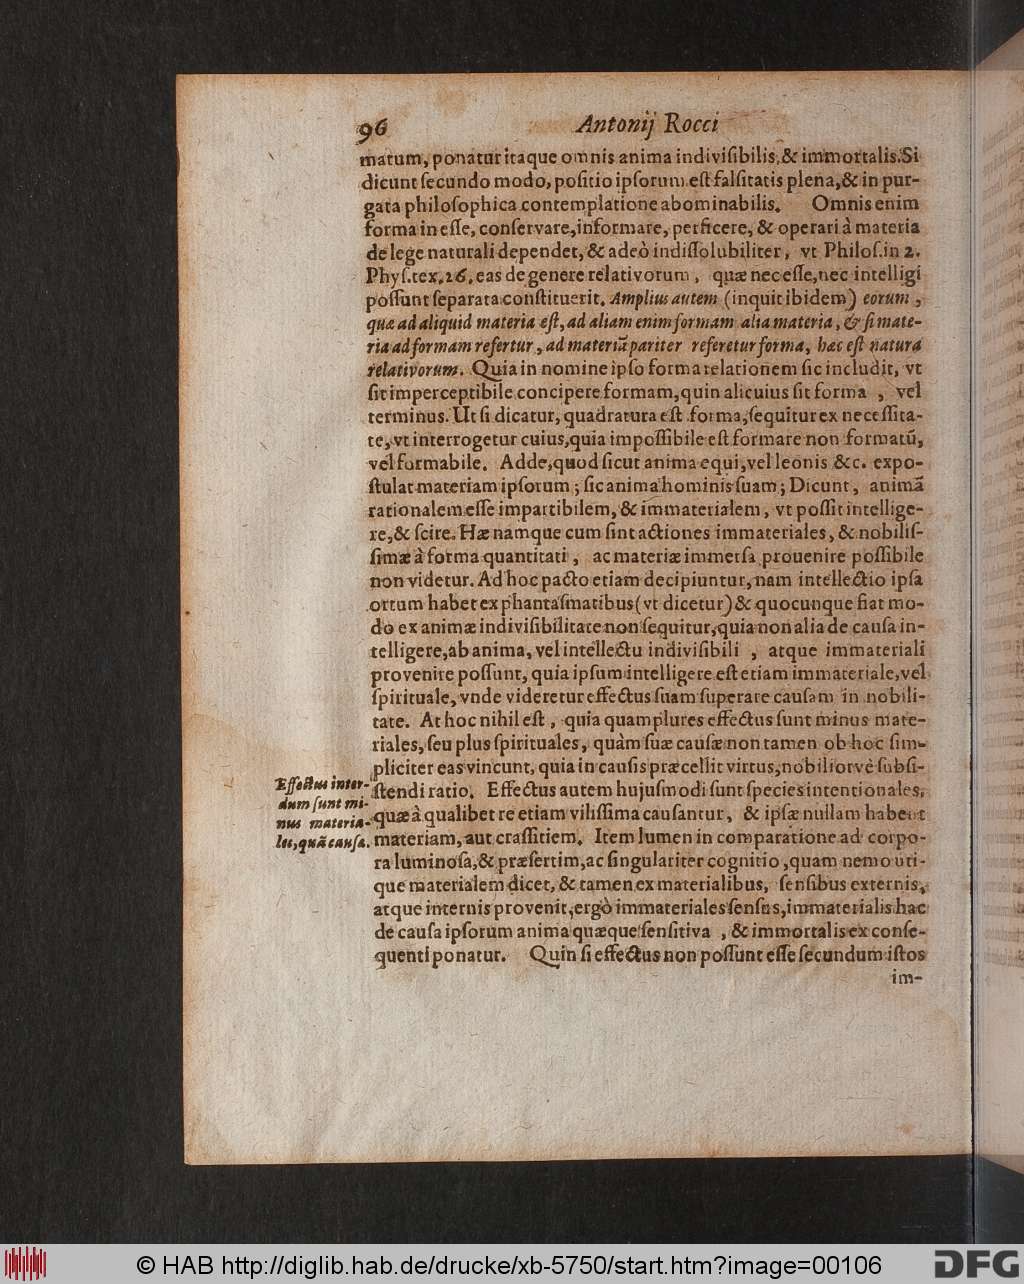 96 Antonij Rocci
matum, ponatur itaque omnis anima indiviſibilis, & immortalis. Si
dicunt ſecundo modo, poſitio ipſorum eſt falſitatis plena, & in pur-
gata philoſophica contemplatione abominabilis. Omnis enim
forma in eſſe, conſervare, informare, perficere, & operari à materia
de lege naturali dependet, & adeò indiſſolubiliter, vt Philoſ. in 2.
Phyſ. tex. 26. eas de genere relativorum, quæ nec eſſe, nec intelligi
poſſunt ſeparata conſtituerit. Amplius autem (inquit ibidem) eorum,
quæ ad aliquid materia eſt, ad aliam enim formam alia materia, & ſi mate-
ria ad formam refertur, ad materiã pariter referetur forma, hæc eſt natura
relativorum. Quia in nomine ipſo forma relationem ſic includit, vt
ſit imperceptibile concipere formam, quin alicuius ſit forma, vel
terminus. Ut ſi dicatur, quadratura eſt forma, ſequitur ex neceſſita-
te, vt interrogetur cuius, quia impoſſibile eſt formare non formatũ,
vel formabile. Adde, quod ſicut anima equi, vel leonis &c. expo-
ſtulat materiam ipſorum; ſic anima hominis ſuam; Dicunt, animã
rationalem eſſe impartibilem, & immaterialem, vt poſſit intellige-
re, & ſcire. Hæ namque cum ſint actiones immateriales, & nobiliſ-
ſimæ à forma quantitati, ac materiæ immerſa provenire poſſibile
non videtur. Ad hoc pacto etiam decipiuntur, nam intellectio ipſa
ortum habet ex phantaſmatibus (vt dicetur) & quocunque fiat mo-
do ex animæ indiviſibilitate non ſequitur, quia non alia de cauſa in-
telligere, ab anima, vel intellectu indiviſibili, atque immateriali
provenire poſſunt, quia ipſum intelligere eſt etiam immateriale, vel
ſpirituale, vnde videretur effectus ſuam ſuperare cauſam in nobili-
tate. At hoc nihil eſt, quia quamplures effectus ſunt minus mate-
riales, ſeu plus ſpirituales, quàm ſuæ cauſæ non tamen ob hoc ſim-
pliciter eas vincunt, quia in cauſis præcellit virtus, nobiliorvè ſubſi-
ſtendi ratio. Effectus autem hujuſmodi ſunt ſpecies intentionales,
quæ à qualibet re etiam viliſſima cauſantur, & ipſæ nullam habent
materiam, aut craſſitiem. Item lumen in comparatione ad corpo-
ra luminoſa, & præſertim, ac ſingulariter cognitio, quam nemo uti-
que materialem dicet, & tamen ex materialibus, ſenſibus externis,
atque internis provenit, ergò immateriales ſenſus, immaterialis hac
de cauſa ipſorum anima quæque ſenſitiva, & immortalis ex conſe-
quenti ponatur. Quin ſi effectus non poſſunt eſſe ſecundum iſtos
im-
Effectus inter-
dum ſunt mi-
nus materia-
les, quã cauſa.
© HAB http://diglib.hab.de/drucke/xb-5750/start.htm?image=00106
DFG